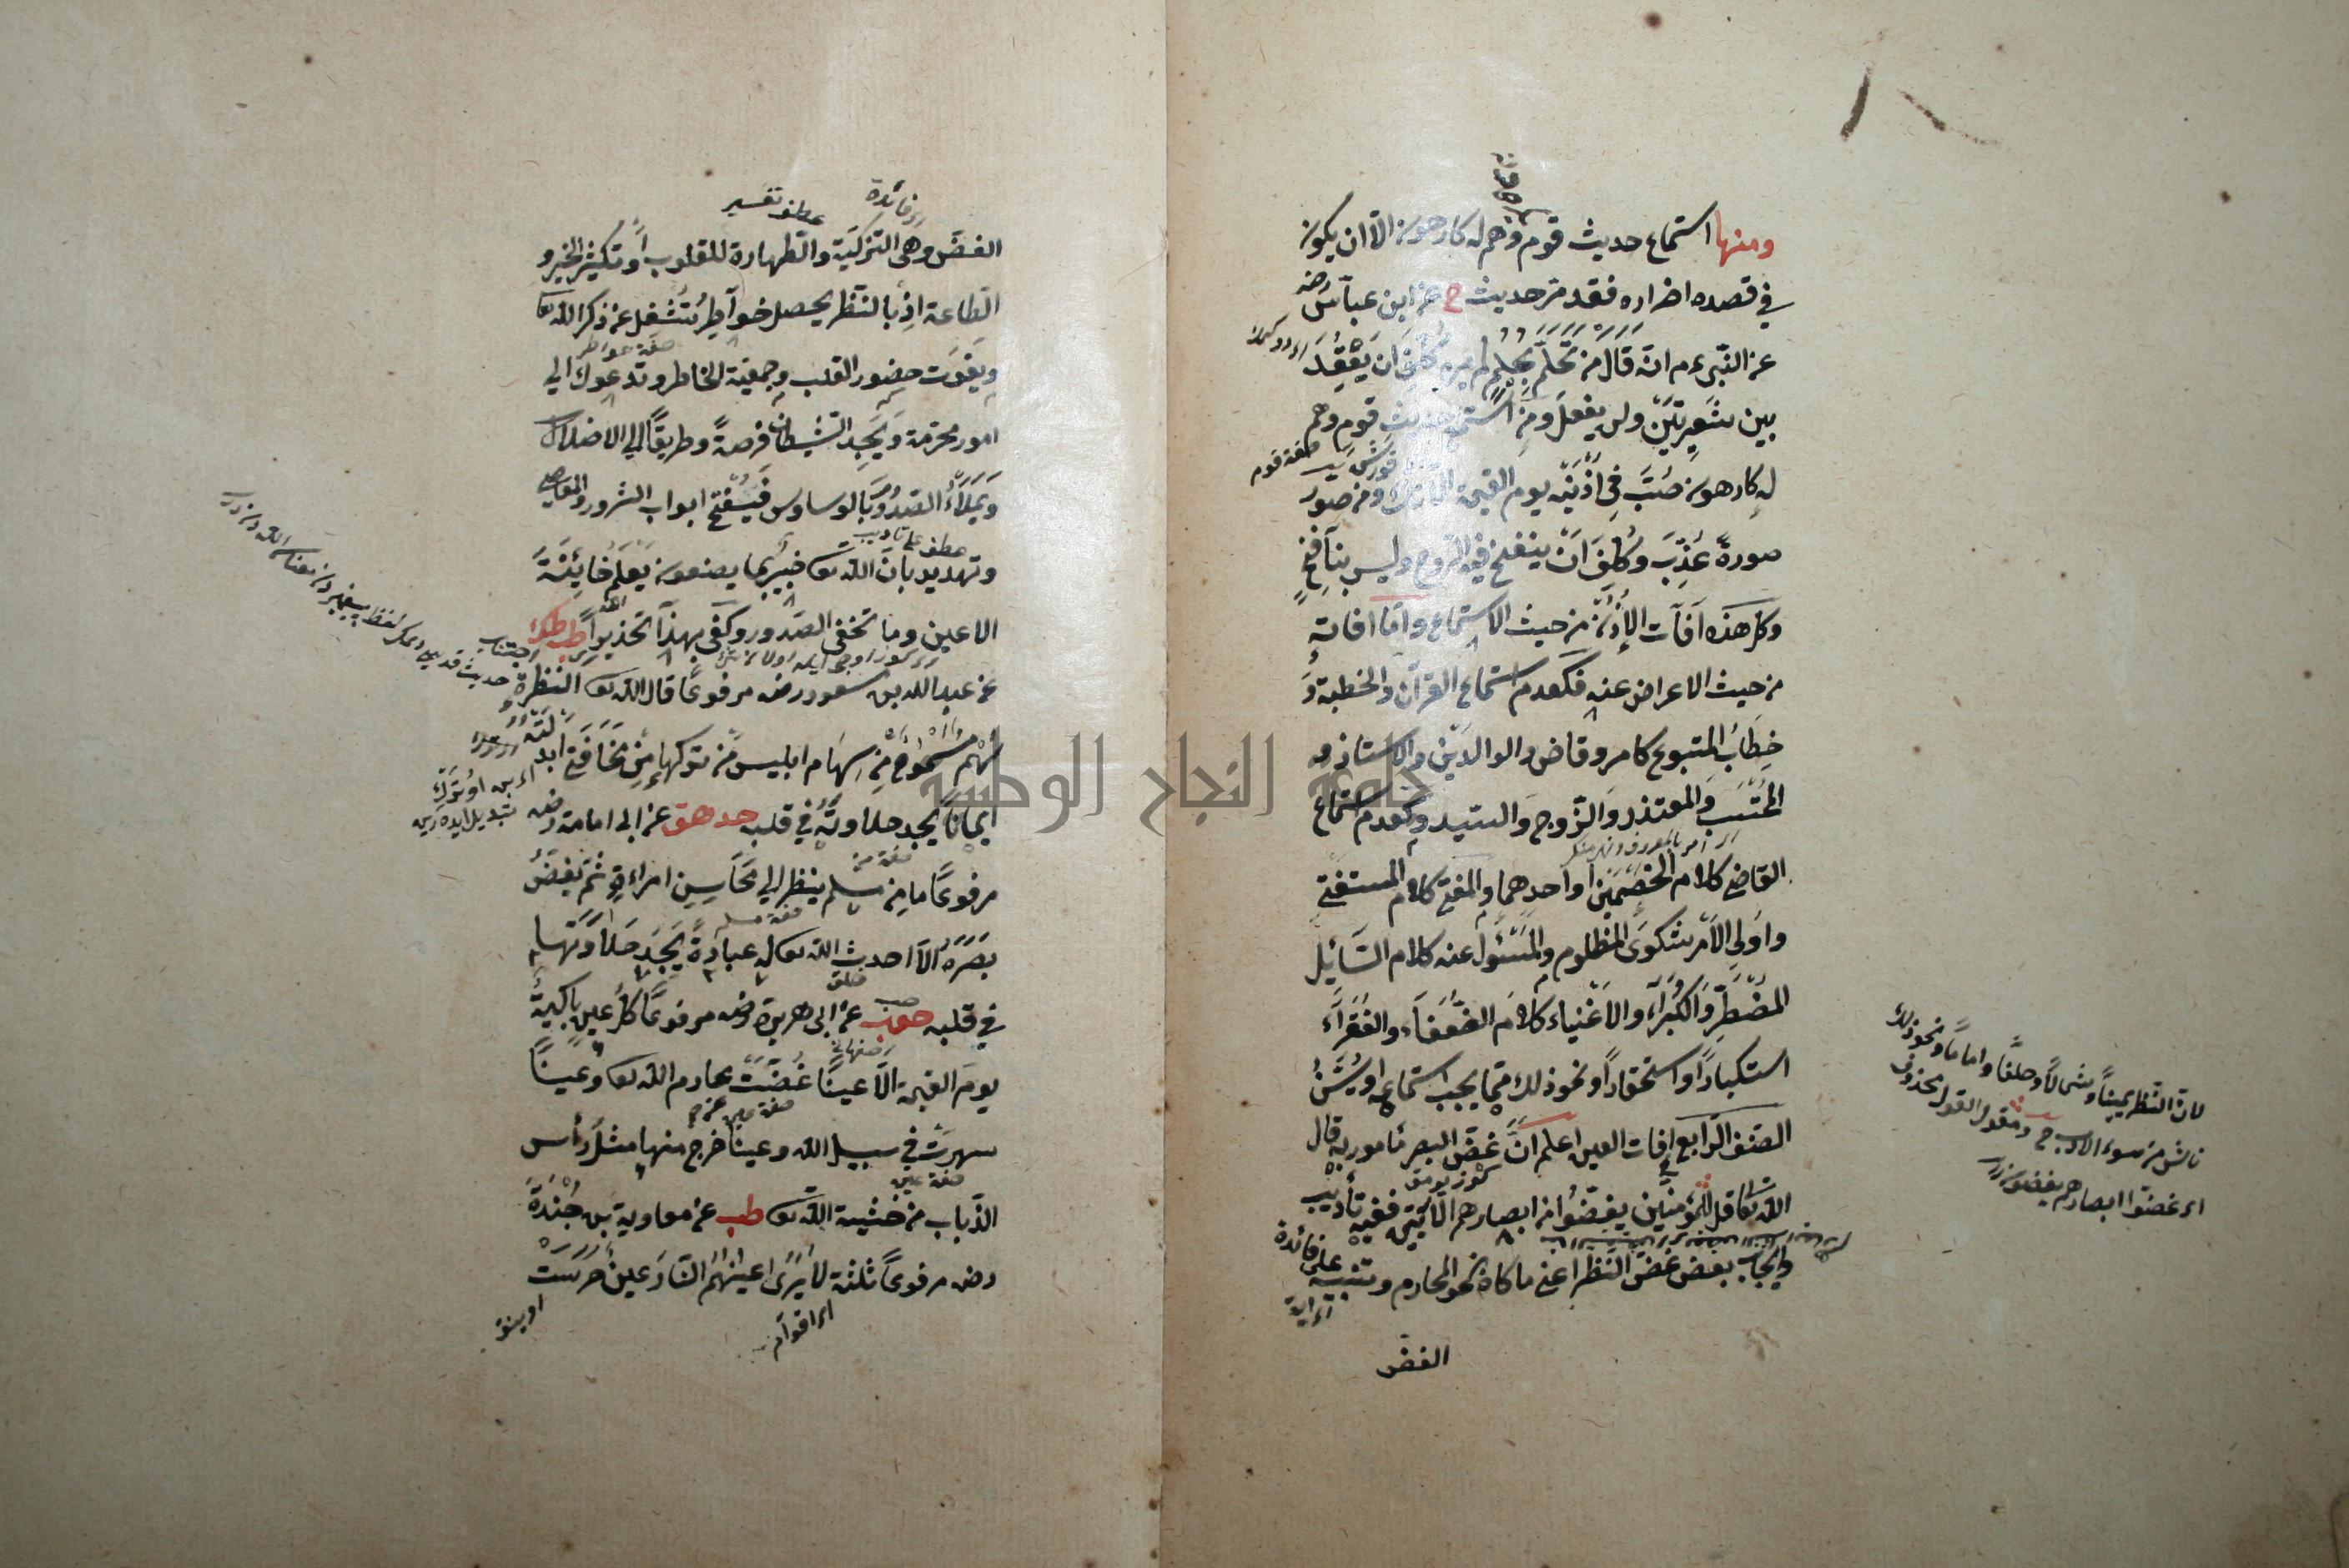 ومنها استماع حديث قوم وهم له كارهون الا ان يكون
في قصده اضراره فقد مر حديث خ عن ابن عباس رضه
عن النبي عم انه قال من تحلم بحلم لم يره كلف ان يعقد
بين شعيرتين ولن يفعل ومن استمع حديث قوم وهم
صفة قوم
له كارهون صب في اذنيه يوم القيمة الآنك ومن صور
صورة عذب وكلف ان ينفخ فيه الروح وليس بنافخ
وكل هذه آفات الاذن من حيث الاستماع واما افاته
من حيث الاعراض عنه فكعدم استماع القرآن والخطبة و
خطاب المتبوع كامر وقاض والوالدين والاستاذ و
المحتسب والمعتذر والزوج والسيد وكعدم استماع
امر بالمعروف ونهى منكر
القاضي كلام الخصمين او احدهما والمفتي كلام المستفتي
واولي الامر شكوى المظلوم والمسئول عنه كلام السائل
المضطر والكبراء والاغنياء كلام الضعفاء والفقراء
استكبارا واستحقارا ونحو ذلك مما يجب استماعه او يسن
الصنف الرابع افات العين اعلم ان غض البصر مأمور به قال
الله تعا قل للمؤمنين يغضوا من ابصارهم الآيتين ففيه تأديب
وايجاب بعض غض النظر اعني ما كان نحو المحارم وتنبيه على فائدة
الغض
لان النظر يمينا وشمالا وخلفا واماما ونحو ذلك
ناش من سوء الادب ومقول القول محذوف
اى غضوا ابصارهم يغضوا
اى فائدة
عطف تفسير
الغض وهي التزكية والطهارة للقلوب او تكثير الخير و
الطاعة اذ بالنظر يحصل خواطر تشغل عن ذكر الله تعا
صفة خواطر
ويفوت حضور القلب وجمعية الخاطر وتدعوك الى
امور محرمة ويجد الشيطان فرصة وطريقا الى الاضلال
ويملأ الصدور بالوساوس فيفتح ابواب الشرور والمعاصي
عطف على تأديب
وتهديد بان الله تعا خبير بما يصنعون يعلم خائنة
الاعين وما تخفي الصدور وكفى بهذا تحذيرا طب طك
عن عبد الله بن مسعود رضه مرفوعا قال الله تعا النظرة
سهم مسموم من سهام ابليس من تركها من مخافتي ابدلته
ايمانا يجد حلاوته في قلبه حد هق عن ابي امامة رضه
صفة من
مرفوعا ما من مسلم ينظر الى محاسن امراءة ثم يغض
صفة مسلم
بصره الا احدث الله تعا له عبادة يجد حلاوتها
خلق
في قلبه صب عن ابي هريرة رضه مرفوعا كل عين باكية
يوم القيمة الا عينا غضت عن محارم الله تعا وعينا
سهرت في سبيل الله وعينا خرج منها مثل رأس
صفة عين
الذباب من خشية الله تعا طب عن معاوية بن جندة
رضه مرفوعا ثلثة لا يرى اعينهم النار عين حرست
اى اقوام
جامعة النجاح الوطنية